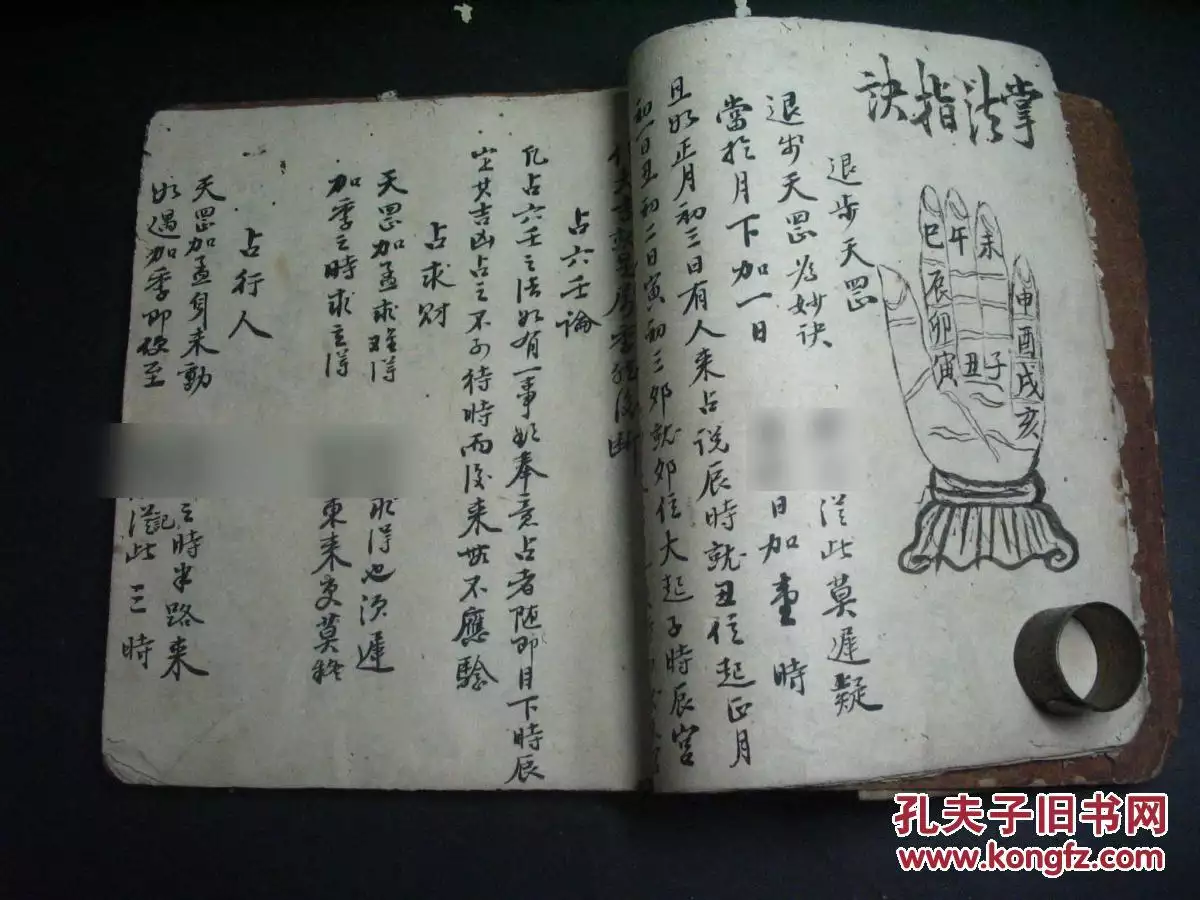 掌法指訣
巳 午 未 申
辰 酉
卯 戌
寅 丑 子 亥
退步天罡
退步天罡為妙訣
從此莫遲疑
當於月下加一日
日加
時
且如正月初三日有人來占說辰時就丑位起正月
初一日丑初二日寅初三卯就卯位大起子時辰宮
占六壬論
凡占六壬之法如有一事如奉意占者随即目下時辰
其吉凶占之不可待時而後來無不應驗
占求財
天罡加孟求难得
求得也須遲
加季之時求立得
東來更莫
占行人
天罡加孟身未動
之時半路來
如遇加季即便至
從此三時
孔夫子旧书网
www.kongfz.com